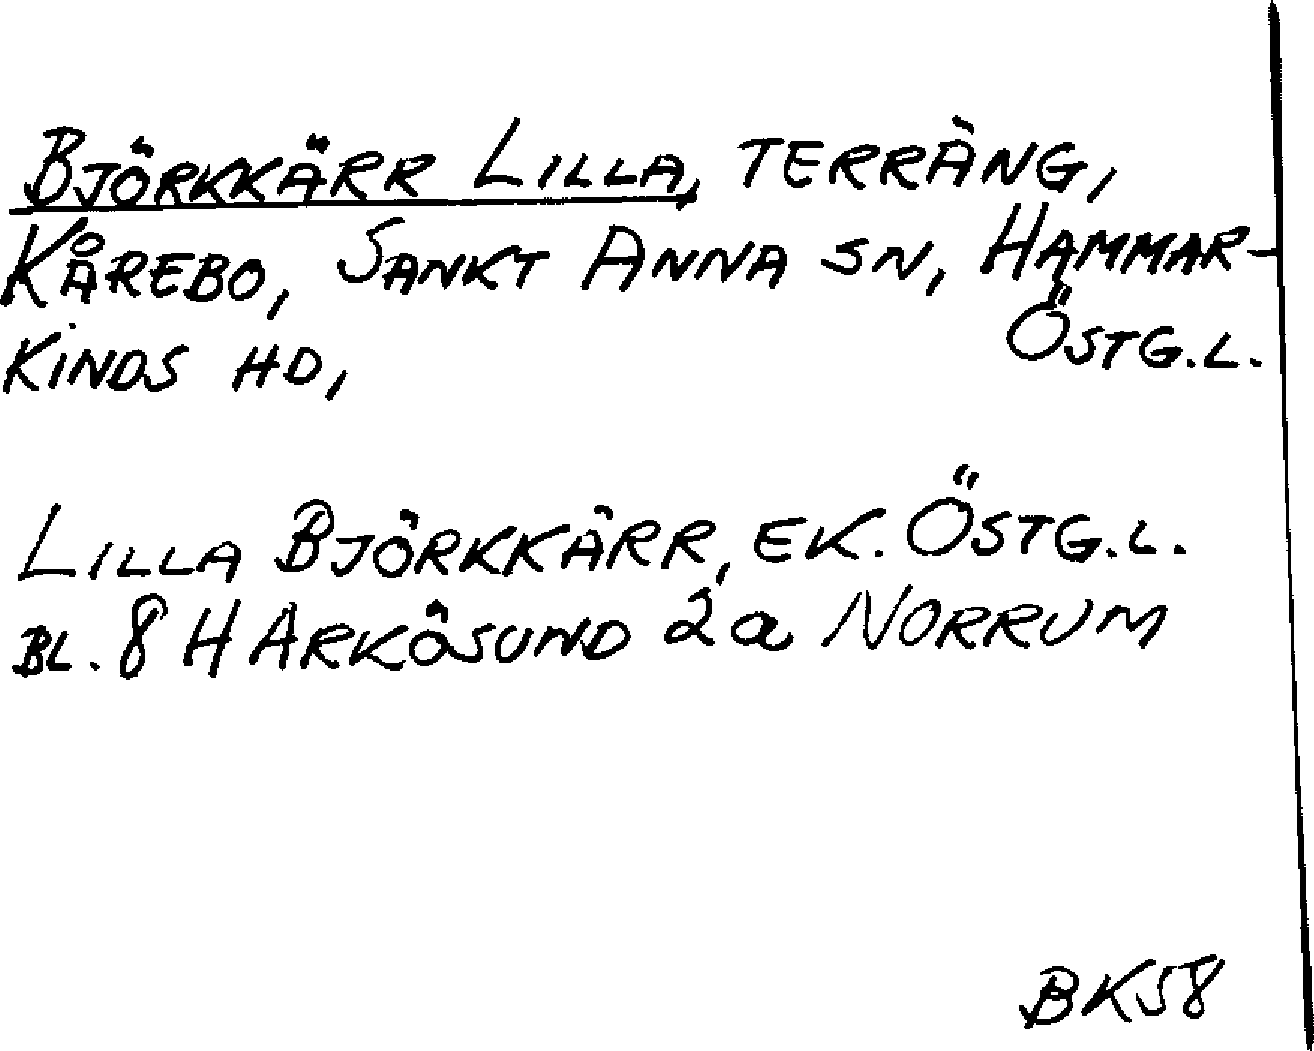 BJÖRKKÄRR LILLA, TERRÄNG,
KÅREBO, SANKT ANNA SN, HAMMAR-
KINDS HD, ÖSTG.L.
LILLA BJÖRKKÄRR, EK. ÖSTG.L.
BL. 8 H ARKÖSUND 2a NORRUM
BK58